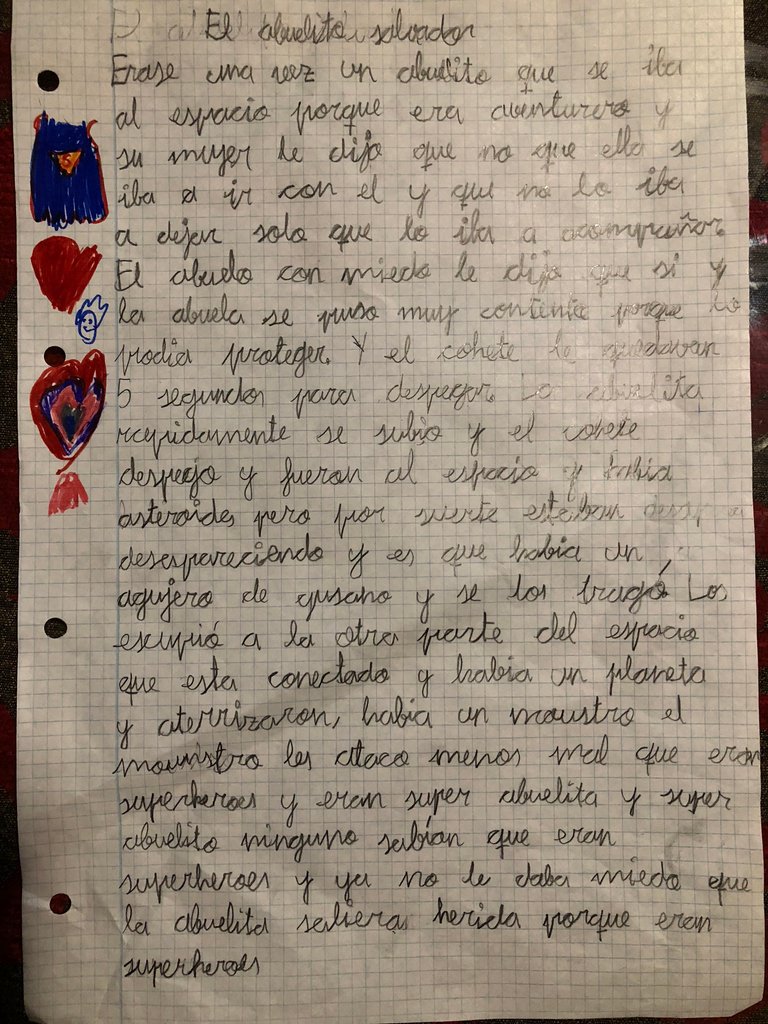 El abuelito salvador
Erase una vez un abuelito que se iba
al espacio porque era aventurero y
su mujer le dijo que no que ella se
iba a ir con el y que no lo iba
a dejar solo que lo iba a acompañar.
El abuelo con miedo le dijo que si y
la abuela se puso muy contenta porque lo
podia proteger. Y el cohete le quedavan
5 segundos para despegar. La abuelita
rapidamente se subio y el cohete
despego y fueron al espacio y habia
asteroides pero por suerte estaban
desapareciendo y es que habia un
agujero de gusano y se los tragó. Los
escupió a la otra parte del espacio
que esta conectado y habia un planeta
y aterrizaron, habia un moustro el
mounstro les ataco menos mal que eran
superheroes y eran super abuelita y super
abuelito ninguno sabían que eran
superheroes y ya no le daba miedo que
la abuelita saliera herida porque eran
superheroes